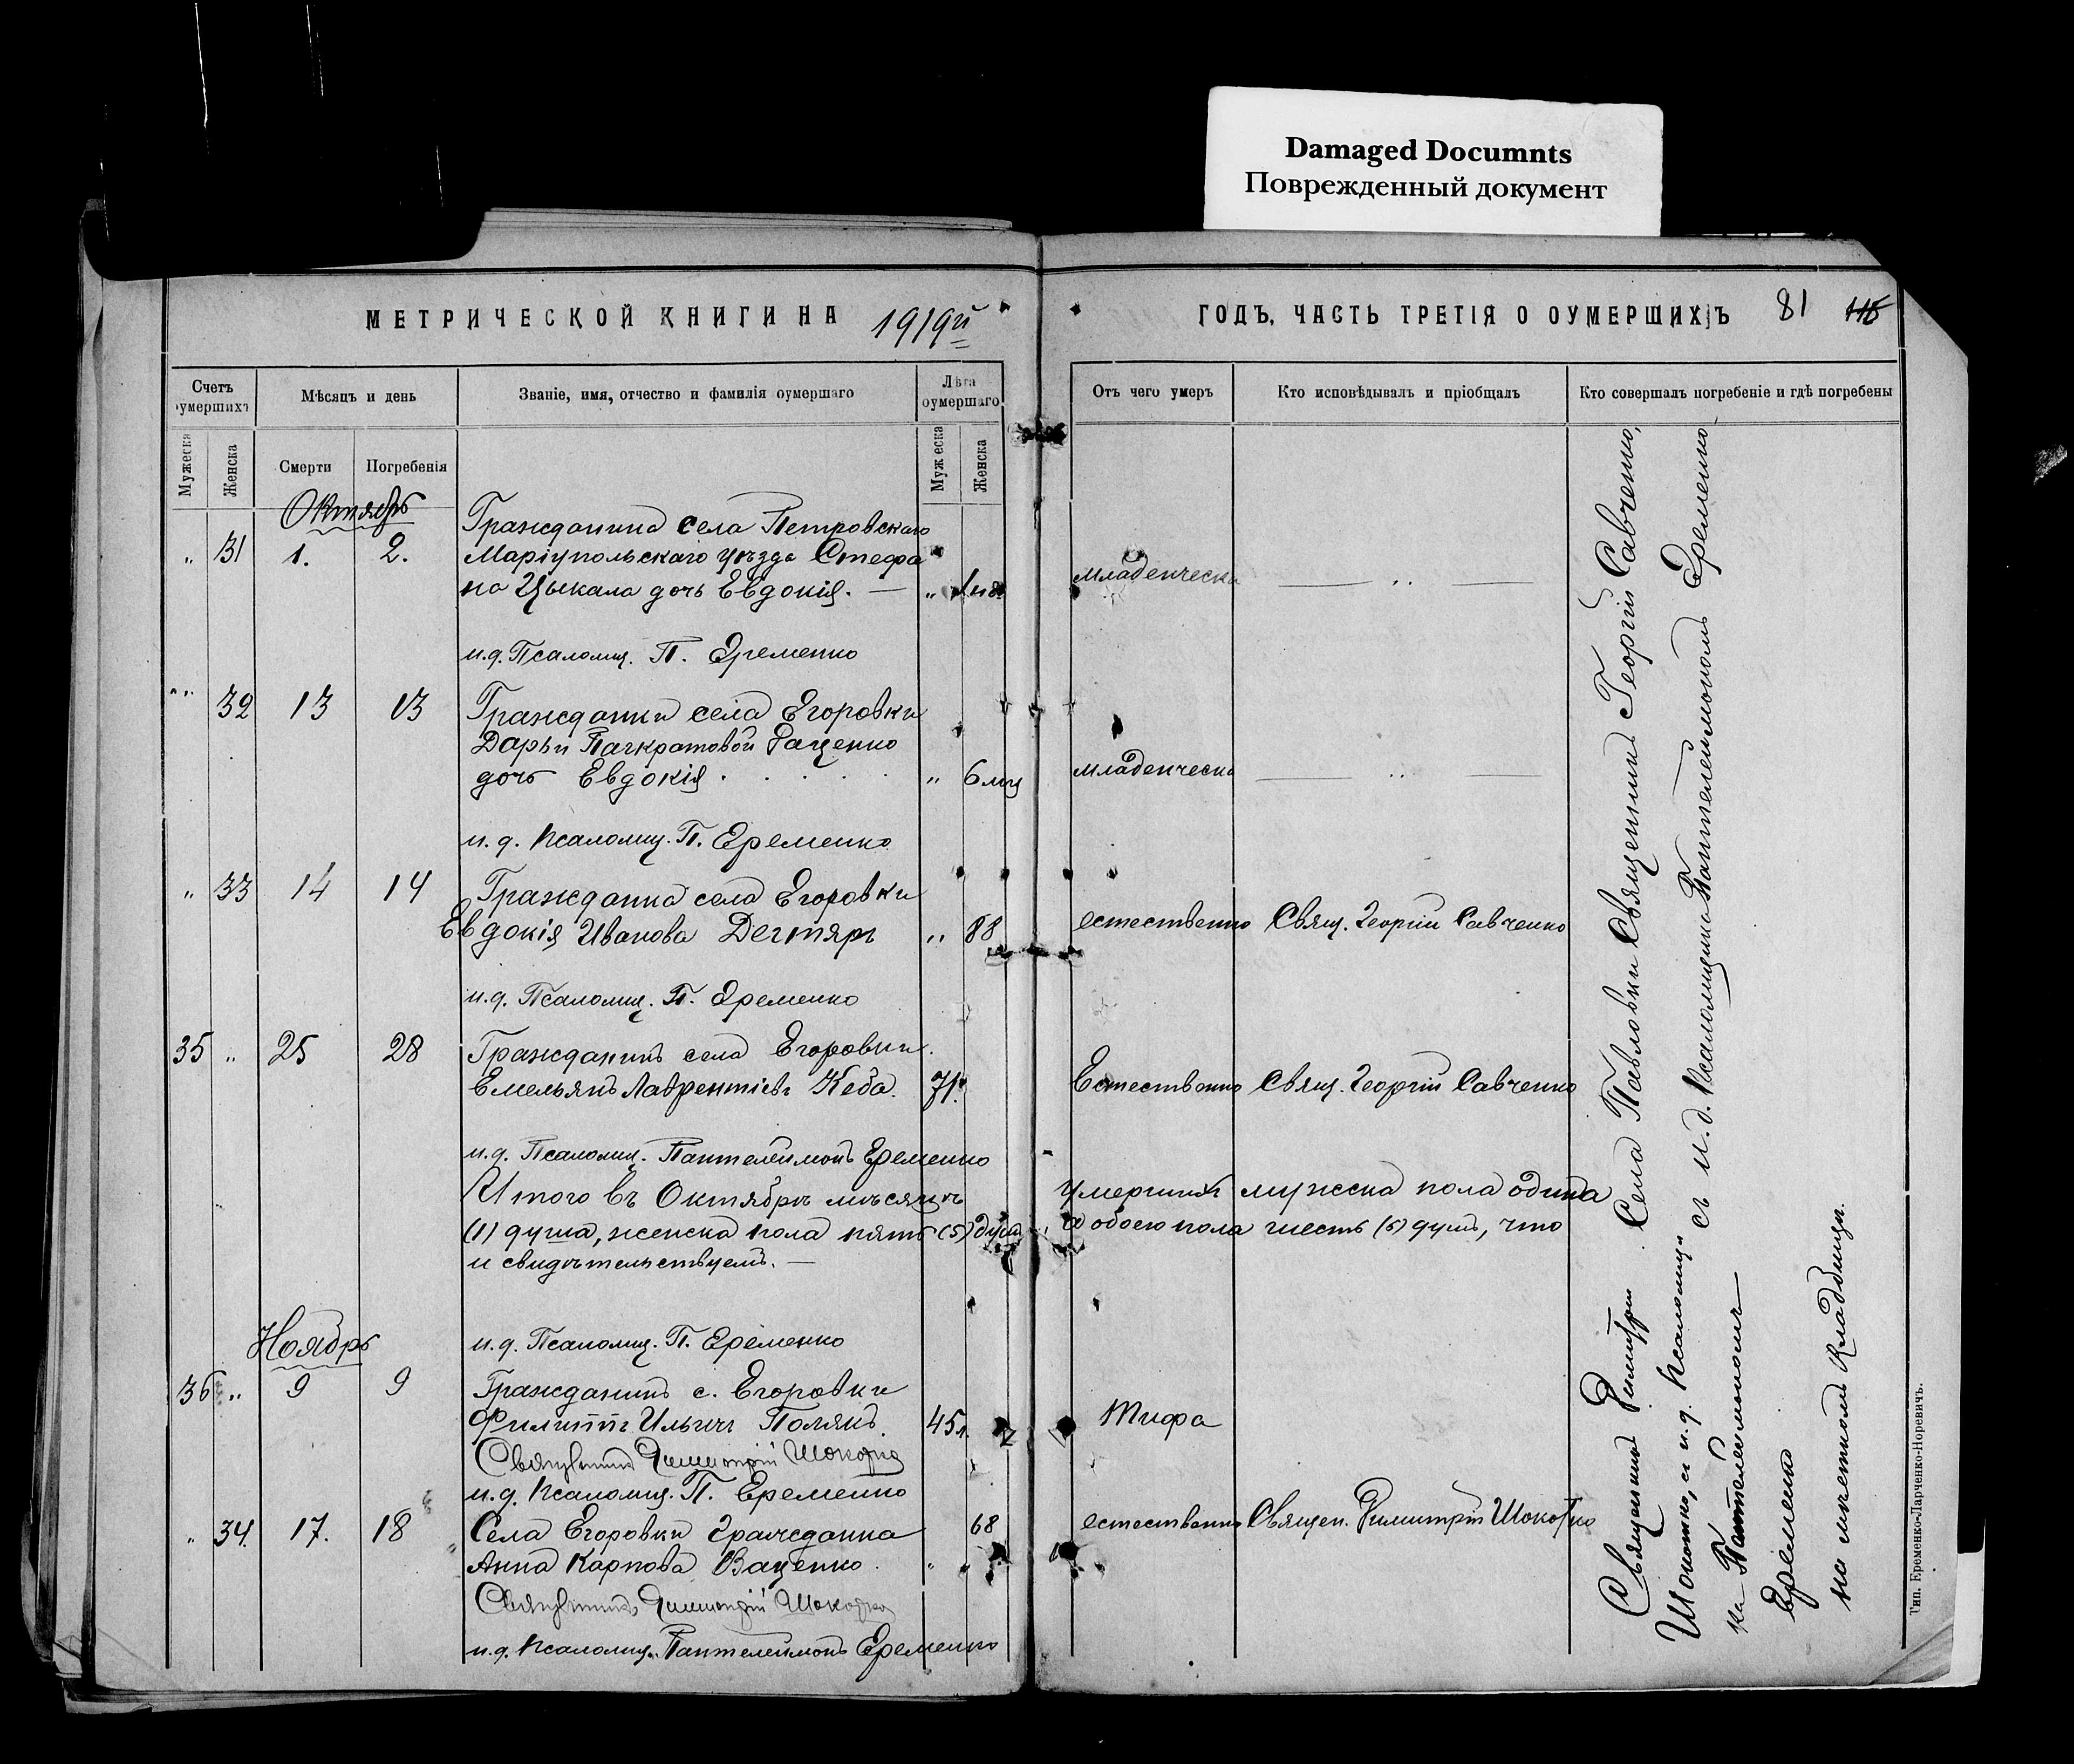 Damaged Documnts
Поврежденный документ
МЕТРИЧЕСКОЙ КНИГИ НА 1919й
ГОДЪ, ЧАСТЬ ТРЕТІЯ О ОУМЕРШИХЪ 81
Счетъ оумершихъ
Мѣсяцъ и день
Званіе, имя, отчество и фамилія оумершаго
Лѣта оумершаго
Отъ чего умеръ
Кто исповѣдывалъ и пріобщалъ
Кто совершалъ погребеніе и гдѣ погребены
Мужеска
Женска
Смерти
Погребенія
Мужеска
Женска
Октябрь
Гражданина села Петровскаго
" 31 1. 2. Маріупольскаго уѣзда Стефа
на Цыкала дочь Евдокія. — " младенческа — " —
и.д. Псаломщ. П. Еременко
" 32 13 13 Гражданки села Егоровки
Дарьи Панкратовой Гащенко
дочь Евдокія " 6 мц младенческа — " —
и.д. Псаломщ. П. Еременко
" 33 14 14 Гражданка села Егоровки
Евдокія Иванова Дегтярь " 88 естественно Свящ. Георгій Савченко
и.д. Псаломщ. П. Еременко
35 " 25 28 Гражданинъ села Егоровки
Емельянъ Лаврентіевъ Кеба. 71. Естественно Свящ. Георгій Савченко
и.д. Псаломщ. Пантелеймонъ Еременко
Итого въ Октябрѣ мѣсяцѣ умерших мужеска пола одна
(1) душа, женска пола пять (5) душъ а обоего пола шесть (6) душъ, что
и свидѣтельствуемъ. —
и.д. Псаломщ. П. Еременко
Ноябрь
36 " 9 9 Гражданинъ с. Егоровки
Филиппъ Ильичъ Полякъ. 45 л. Тифа
Священникъ Димитрій Шокотко
и.д. Псаломщ. П. Еременко
" 34. 17. 18 Села Егоровки гражданка 68 естественно Священ. Димитрій Шокотко
Анна Карпова Ващенко " "
Священникъ Димитрій Шокотко
и.д. Псаломщ. Пантелеймонъ Еременко
Села Павловки Священникъ Георгій Савченко,
съ и.д. Псаломщика Пантелеймономъ Еременко
Священникъ Димитрій
Шокотко, съ и.д. Псаломщи
ка Пантелеймономъ
Еременко
на мѣстномъ кладбищѣ.
Тип. Еременко-Ларченко-Норевичъ.